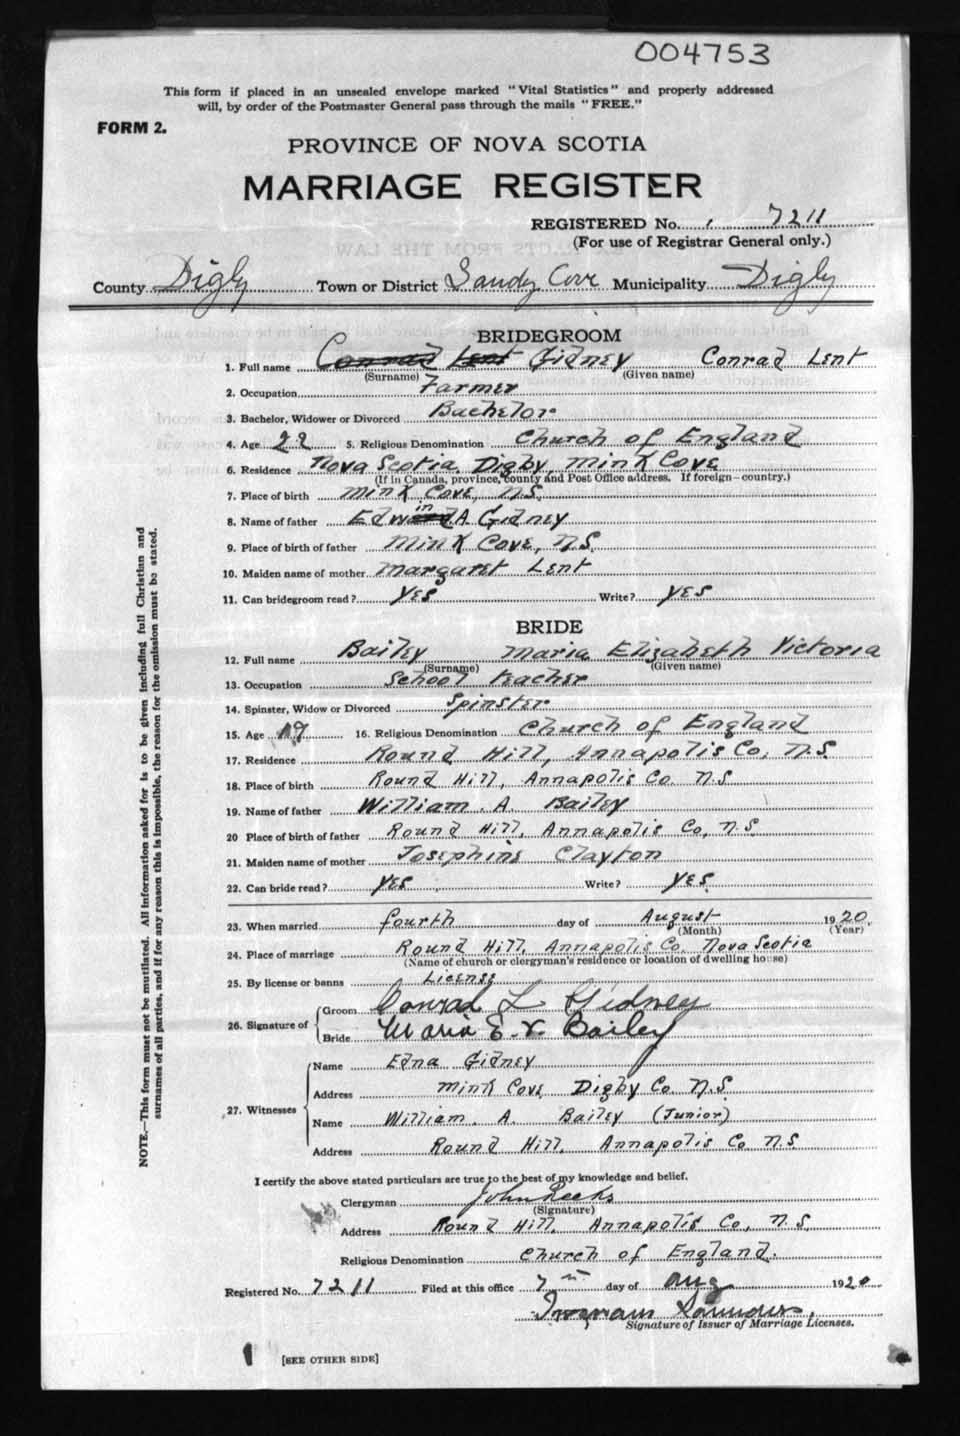 004753
This form if placed in an unsealed envelope marked "Vital Statistics" and properly addressed
will, by order of the Postmaster General pass through the mails "FREE."
FORM 2.
PROVINCE OF NOVA SCOTIA
MARRIAGE REGISTER
REGISTERED No. 7211
(For use of Registrar General only.)
County Digby Town or District Sandy Cove Municipality Digby
BRIDEGROOM
1. Full name Conrad Lent Gidney Conrad Lent
(Surname) (Given name)
2. Occupation Farmer
3. Bachelor, Widower or Divorced Bachelor
4. Age 22 5. Religious Denomination Church of England
6. Residence Nova Scotia, Digby, Mink Cove
(If in Canada, province, county and Post Office address. If foreign—country.)
7. Place of birth Mink Cove, N.S.
8. Name of father Edwin A. Gidney
9. Place of birth of father Mink Cove, N.S.
10. Maiden name of mother Margaret Lent
11. Can bridegroom read? Yes Write? Yes
BRIDE
12. Full name Bailey Maria Elizabeth Victoria
(Surname) (Given name)
13. Occupation School teacher
14. Spinster, Widow or Divorced Spinster
15. Age 19 16. Religious Denomination Church of England
17. Residence Round Hill, Annapolis Co, N.S.
18. Place of birth Round Hill, Annapolis Co. N.S
19. Name of father William. A. Bailey
20 Place of birth of father Round Hill, Annapolis Co, N.S.
21. Maiden name of mother Josephine Clayton
22. Can bride read? Yes Write? Yes.
23. When married fourth day of August 1920.
(Month) (Year)
24. Place of marriage Round Hill, Annapolis Co. Nova Scotia
(Name of church or clergyman's residence or location of dwelling house)
25. By license or banns License
26. Signature of Groom Conrad L Gidney
Bride Maria E. V. Bailey
27. Witnesses Name Edna Gidney
Address Mink Cove Digby Co. N.S.
Name William. A. Bailey (Junior)
Address Round Hill, Annapolis Co N.S.
I certify the above stated particulars are true to the best of my knowledge and belief.
Clergyman John Reeks
(Signature)
Address Round Hill, Annapolis Co, N.S.
Religious Denomination Church of England.
Registered No. 7211 Filed at this office 7th day of Aug 1920
Saunders
Signature of Issuer of Marriage Licenses.
[SEE OTHER SIDE]
NOTE.—This form must not be mutilated. All information asked for is to be given including full Christian and
surnames of all parties, and if for any reason this is impossible, the reason for the omission must be stated.